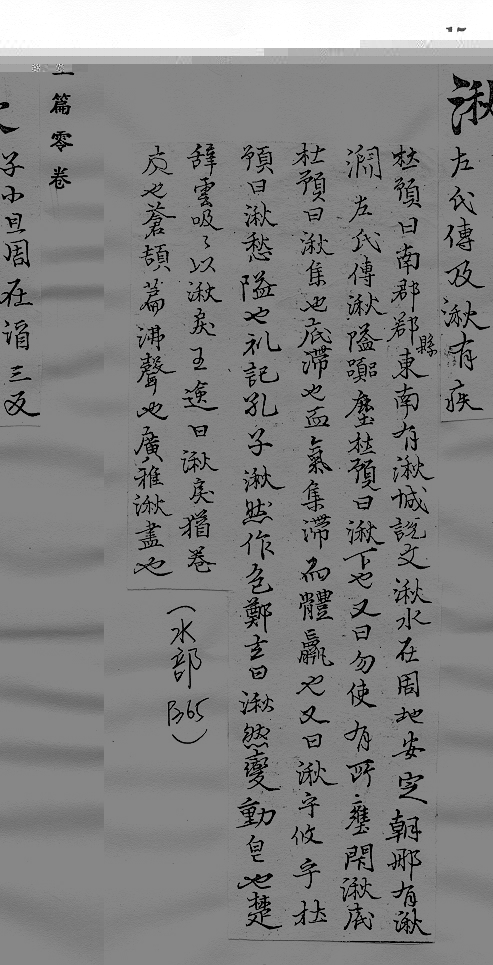 湫
左氏傳及湫有疾
杜預曰南郡鄀縣東南有湫城說文湫水在周地安定朝那有湫
淵左氏傳湫隘嚻塵杜預曰湫下也又曰勿使有所壅閇湫底
杜預曰湫集也底滯也血氣集滯而體羸也又曰湫乎攸乎杜
預曰湫愁隘也礼記孔子湫然作色鄭玄曰湫然變動皃也楚
辞雲吸〻以湫戾王逸曰湫戾猶卷
戾也蒼頡篇沸聲也廣雅湫盡也
(水部
365)
篇零卷
子小旦周在淯三文